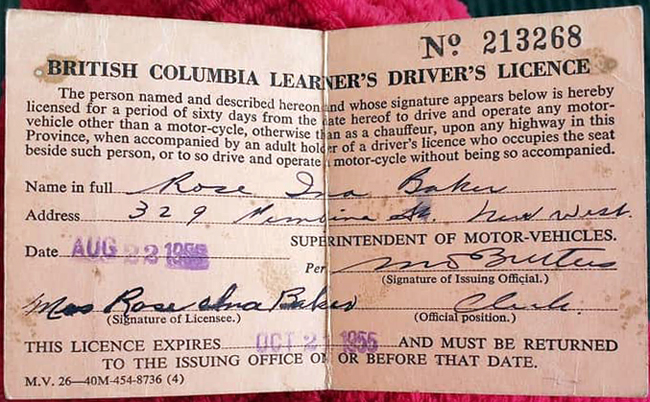 Nº 213268
BRITISH COLUMBIA LEARNER'S DRIVER'S LICENCE
The person named and described hereon and whose signature appears below is hereby
licensed for a period of sixty days from the date hereof to drive and operate any motor-
vehicle other than a motor-cycle, otherwise than as a chauffeur, upon any highway in this
Province, when accompanied by an adult holder of a driver's licence who occupies the seat
beside such person, or to so drive and operate a motor-cycle without being so accompanied.
Name in full Rose Ina Baker
Address 329 St. New West.
SUPERINTENDENT OF MOTOR-VEHICLES.
Date AUG 22 1955
Per
(Signature of Issuing Official.)
Mrs Rose Ina Baker Clerk.
(Signature of Licensee.) (Official position.)
THIS LICENCE EXPIRES OCT 21 1955 AND MUST BE RETURNED
TO THE ISSUING OFFICE ON OR BEFORE THAT DATE.
M.V. 26—40M-454-8736 (4)